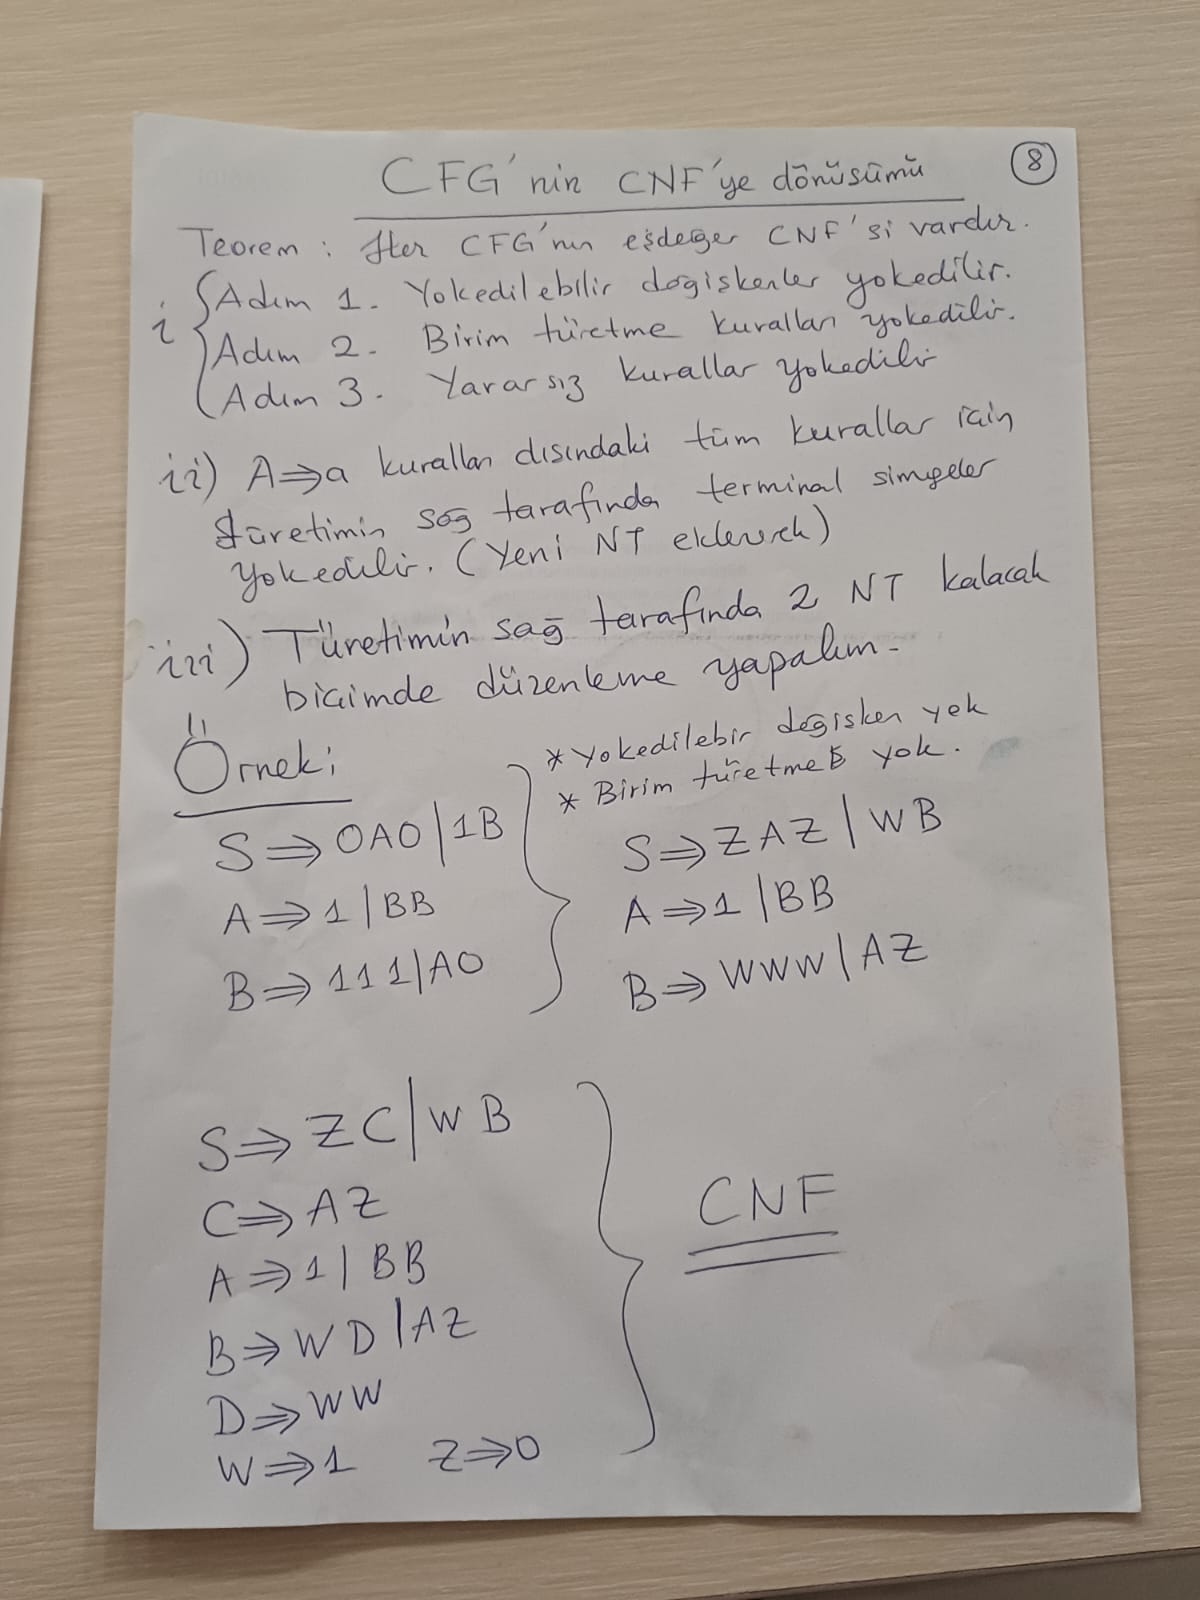 CFG'nin CNF'ye dönüsümü
8
Teorem : Her CFG'nin eşdeğer CNF'si vardır.
i
Adım 1. Yokedilebilir degiskenler yokedilir.
Adım 2. Birim türetme kuralları yokedilir.
Adım 3. Yararsız kurallar yokedilir
ii) A⇒a kuralları dısındaki tüm kurallar icin
türetimin sağ tarafında terminal simgeler
yokedilir. (Yeni NT eklenerek)
iii) Türetimin sağ tarafında 2 NT kalacak
bicimde düzenleme yapalım.
Örnek;
* Yokedilebir değisken yok
* Birim türetme yok.
S⇒0A0|1B
A⇒1|BB
B⇒111|A0
S⇒ZAZ|WB
A⇒1|BB
B⇒WWW|AZ
S⇒ZC|WB
C⇒AZ
A⇒1|BB
B⇒WD|AZ
D⇒WW
W⇒1 Z⇒0
CNF